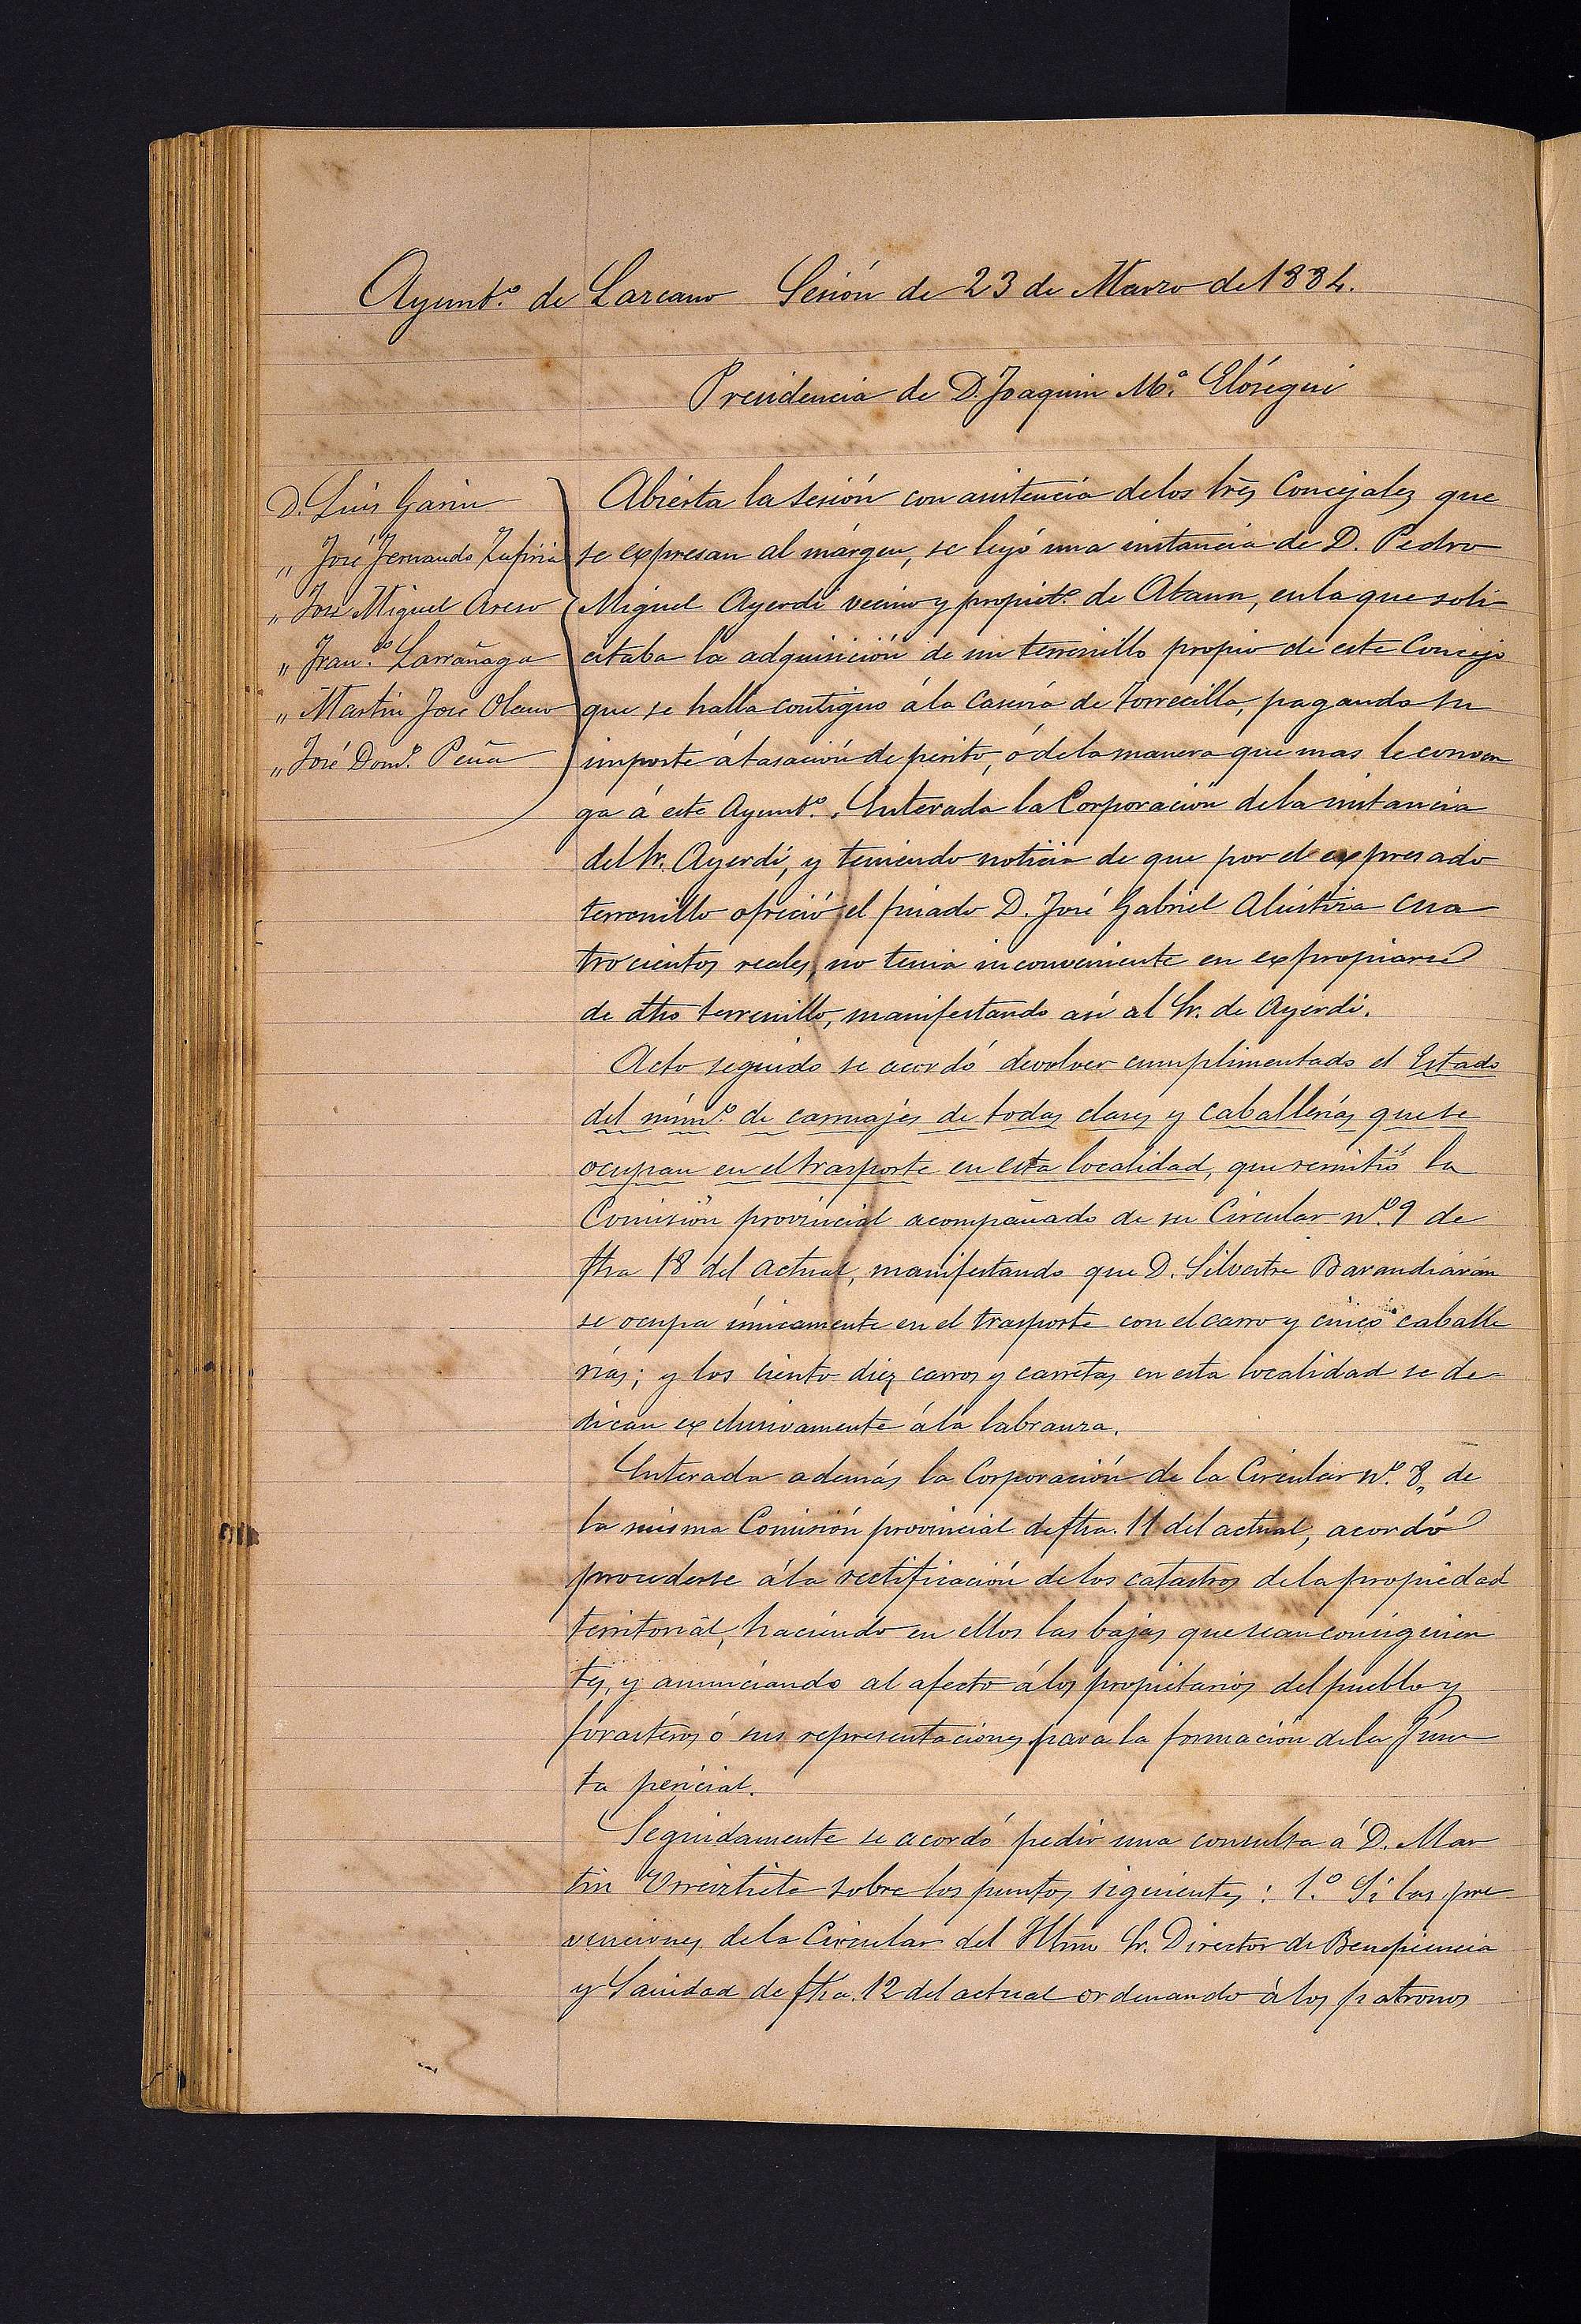 Ayunt.º de Lazcano Sesión de 23 de Marzo de 1884.
Presidencia de D. Joaquin M.ª Elósegui
D. Luis Garin
„ José Fernando Zufiria
„ José Miguel Areso
„ Fran.co Larrañaga
„ Martin José Olano
„ José Dom.º Peña
Abierta la sesión con asistencia de los Srēs Concejales que
se expresan al márgen, se leyó una instancia de D. Pedro
Miguel Ayerdi vecino y propiet.º de Ataun, en la que soli
citaba la adquisición de un terrenillo propio de este Concejo
que se halla contiguo á la Casería de Torrecilla, pagando su
importe á tasación de perito, ó de la manera que mas le conven
ga á este Ayunt.º. Enterada la Corporación de la instancia
del Sr. Ayerdi, y teniendo noticia de que por el expresado
terrenillo ofreció el finado D. José Gabriel Alústiza cua
trocientos reales, no tenia inconveniente en expropiarse
de dho terrenillo, manifestando así al Sr. de Ayerdi.
Acto seguido se acordó devolver cumplimentado el Estado
del núm.º de carruajes de todas clases y caballerías que se
ocupan en el trasporte en esta localidad, que remitió la
Comisión provincial acompañado de su Circular n.º 9 de
fha 18 del actual, manifestando que D. Silvestre Barandiarán
se ocupa únicamente en el trasporte con el carro y cinco caballe
rías; y los ciento diez carros y carretas en esta localidad se de=
dican exclusivamente á la labranza.
Enterada además la Corporación de la Circular n.º 8„ de
la misma Comisión provincial de fha. 11 del actual, acordó
procederse á la rectificación de los catastros de la propiedad
territorial, haciendo en ellos las bajas que sean consiguien
tes, y anunciando al afecto á los propietarios del pueblo y
forasteros ó sus representaciones para la formación de la Jun
ta pericial.
Seguidamente se acordó pedir una consulta á D. Mar
tin Urreiztieta sobre los puntos siguientes: 1.º Si las pre
venciones de la Circular del Iltmo Sr. Director de Beneficencia
y Sanidad de fha. 12 del actual ordenando á los patronos